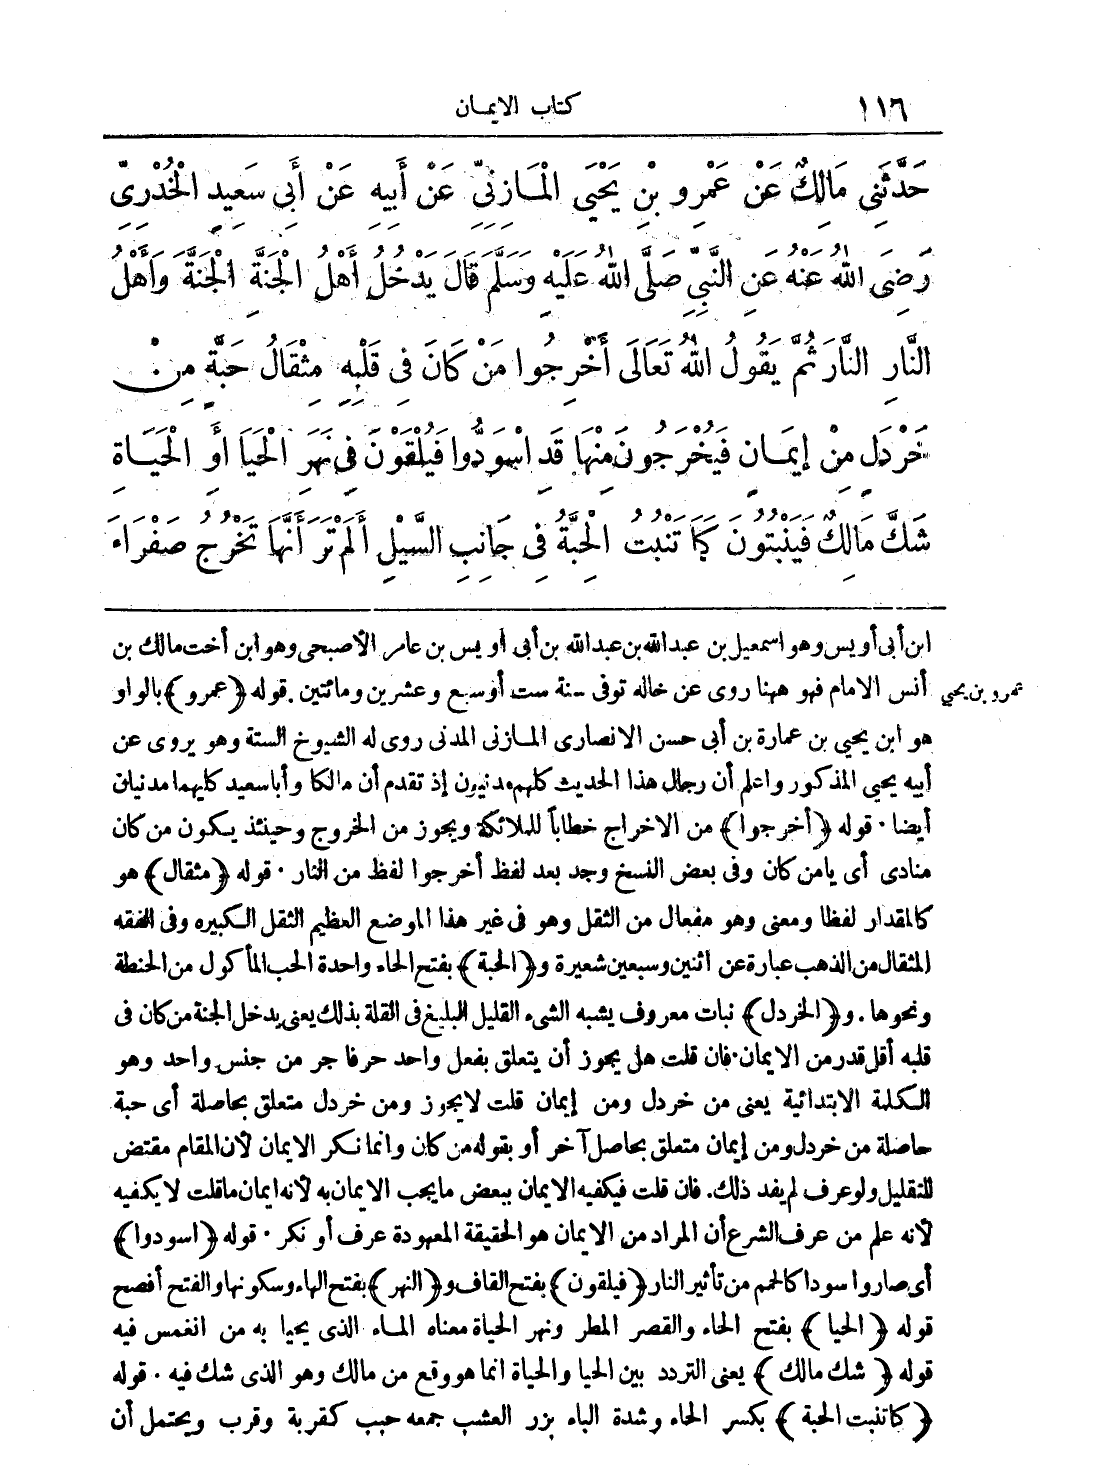 ١١٦ كتاب الايمان
حَدَّثَنِى مَالِكٌ عَنْ عَمْرِو بْنِ يَحْيَى الْمَازِنِيِّ عَنْ أَبِيهِ عَنْ أَبِى سَعِيدٍ الْخُدْرِيِّ
رَضِىَ اللهُ عَنْهُ عَنِ النَّبِيِّ صَلَّى اللهُ عَلَيْهِ وَسَلَّمَ قَالَ يَدْخُلُ أَهْلُ الْجَنَّةِ الْجَنَّةَ وَأَهْلُ
النَّارِ النَّارَ ثُمَّ يَقُولُ اللهُ تَعَالَى أَخْرِجُوا مَنْ كَانَ فِى قَلْبِهِ مِثْقَالُ حَبَّةٍ مِنْ
خَرْدَلٍ مِنْ إِيمَانٍ فَيُخْرَجُونَ مِنْهَا قَدِ اسْوَدُّوا فَيُلْقَوْنَ فِى نَهَرِ الْحَيَا أَوِ الْحَيَاةِ
شَكَّ مَالِكٌ فَيَنْبُتُونَ كَمَا تَنْبُتُ الْحِبَّةُ فِى جَانِبِ السَّيْلِ أَلَمْ تَرَ أَنَّهَا تَخْرُجُ صَفْرَاءَ
ابن أبى أويس وهو اسمعيل بن عبد الله بن عبد الله بن أبى أويس بن عامر الأصبحى وهو ابن أخت مالك بن
أنس الامام فهو ههنا روى عن خاله توفى سنة ست أو سبع وعشرين ومائتين . قوله ﴿عمرو﴾ بالواو
عمرو بن يحيي
هو ابن يحيي بن عمارة بن أبى حسن الانصارى المازنى المدنى روى له الشيوخ الستة وهو يروى عن
أبيه يحيي المذكور واعلم أن رجال هذا الحديث كلهم مدنيون إذ تقدم أن مالكا وأبا سعيد كليهما مدنيان
أيضا . قوله ﴿أخرجوا﴾ من الاخراج خطاباً للملائكة ويجوز من الخروج وحينئذ يكون من كان
منادى أى يامن كان وفى بعض النسخ وجد بعد لفظ أخرجوا لفظ من النار . قوله ﴿مثقال﴾ هو
كالمقدار لفظا ومعنى وهو مفعال من الثقل وهو فى غير هذا الموضع العظيم الثقل الكبيره وفى الفقه
المثقال من الذهب عبارة عن اثنين وسبعين شعيرة و﴿الحبة﴾ بفتح الحاء واحدة الحب المأكول من الحنطة
ونحوها . و﴿الخردل﴾ نبات معروف يشبه الشىء القليل البليغ فى القلة بذلك يعنى يدخل الجنة من كان فى
قلبه أقل قدر من الايمان . فان قلت هل يجوز أن يتعلق بفعل واحد حرفا جر من جنس واحد وهو
الكلمة الابتدائية يعنى من خردل ومن إيمان قلت لايجوز ومن خردل متعلق بحاصلة أى حبة
حاصلة من خردل ومن إيمان متعلق بحاصل آخر أو بقوله من كان وانما نكر الايمان لأن المقام مقتض
للتقليل ولو عرف لم يفد ذلك . فان قلت فيكفيه الايمان ببعض مايجب الايمان به لأنه ايمان ما قلت لا يكفيه
لأنه علم من عرف الشرع أن المراد من الايمان هو الحقيقة المعهودة عرف أو نكر . قوله ﴿اسودوا﴾
أى صاروا سودا كالحمم من تأثير النار ﴿فيلقون﴾ بفتح القاف و﴿النهر﴾ بفتح الهاء وسكونها والفتح أفصح
قوله ﴿الحيا﴾ بفتح الحاء والقصر المطر ونهر الحياة معناه الماء الذى يحيا به من انغمس فيه
قوله ﴿شك مالك﴾ يعنى التردد بين الحيا والحياة انما هو وقع من مالك وهو الذى شك فيه . قوله
﴿كما تنبت الحبة﴾ بكسر الحاء وشدة الباء بزر العشب جمعه حبب كقربة وقرب ويحتمل أن